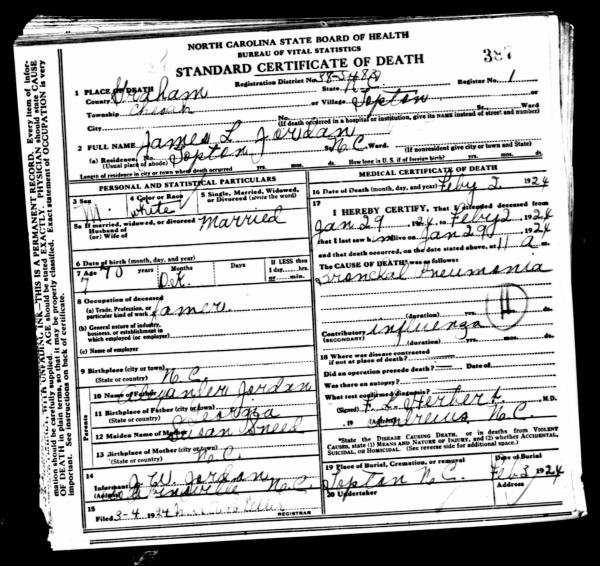 NORTH CAROLINA STATE BOARD OF HEALTH
BUREAU OF VITAL STATISTICS
STANDARD CERTIFICATE OF DEATH
387
1 PLACE OF DEATH
Registration District No. 38-5480 Register No. 1
County Graham State N.C.
Township Cheoah or Village Topton
City No. St. Ward
(If death occurred in a hospital or institution, give its NAME instead of street and number)
2 FULL NAME James L. Jordan
(a) Residence. No. Topton N.C. Ward.
(Usual place of abode) (If nonresident give city or town and State)
Length of residence in city or town where death occurred yrs. mos. ds. How long in U. S. if of foreign birth? yrs. mos. ds.
PERSONAL AND STATISTICAL PARTICULARS
3 Sex M. 4 Color or Race White 5 Single, Married, Widowed, or Divorced (write the word)
5a If married, widowed, or divorced Married
Husband of
(or) Wife of
6 Date of birth (month, day, and year)
7 Age 70 years Months Days IF LESS than
1 day, hrs.
or min.
7 D.K.
8 Occupation of deceased
(a) Trade, Profession, or
particular kind of work Farmer
(b) General nature of industry,
business, or establishment in
which employed (or employer)
(c) Name of employer
9 Birthplace (city or town)
(State or country) N.C.
10 Name of Father Jordan
11 Birthplace of Father (city or town)
(State or country) Georgia
12 Maiden Name of Mother Susan Sneed
13 Birthplace of Mother (city or town)
(State or country) N.C.
Parents
14 Informant J.W. Jordan
(Address) N.C.
15 Filed 3-4, 1924
REGISTRAR
MEDICAL CERTIFICATE OF DEATH
16 Date of Death (month, day, and year) Feby 2, 1924
17 I HEREBY CERTIFY, That I attended deceased from
Jan 29, 1924, to Feby 2, 1924
that I last saw him alive on Jan 29, 1924
and that death occurred, on the date stated above, at 11 a m.
The CAUSE OF DEATH* was as follows:
Bronchal Pneumonia
(duration) yrs. mos. ds.
11
Contributory influenza
(SECONDARY) (duration) yrs. mos. ds.
18 Where was disease contracted
if not at place of death?
Did an operation precede death? Date of
Was there an autopsy?
What test confirmed diagnosis?
(Signed) F. L. Herbert, M.D.
, 19 (Address) Andrews N.C.
*State the DISEASE CAUSING DEATH, or in deaths from VIOLENT
CAUSES, state (1) MEANS AND NATURE OF INJURY, and (2) whether ACCIDENTAL,
SUICIDAL, or HOMICIDAL. (See reverse side for additional space.)
19 Place of Burial, Cremation, or removal Date of Burial
Topton N.C. Feb 3 1924
20 Undertaker Address
THIS IS A PERMANENT RECORD. Every item of information should be carefully supplied. AGE should be stated EXACTLY. PHYSICIAN should state CAUSE OF DEATH in plain terms, so that it may be properly classified. Exact statement of OCCUPATION is very important. See instructions on back of certificate.